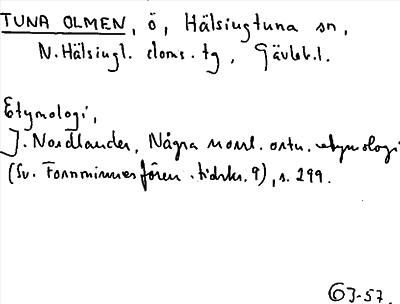 TUNA OLMEN, ö, Hälsingtuna sn,
N. Hälsingl. doms. tg, Gävleb. l.
Etymologi,
J. Nordlander, Några norrl. ortn. etymologi
(Sv. Fornminnesfören. tidskr. 9), s. 299.
63-57.